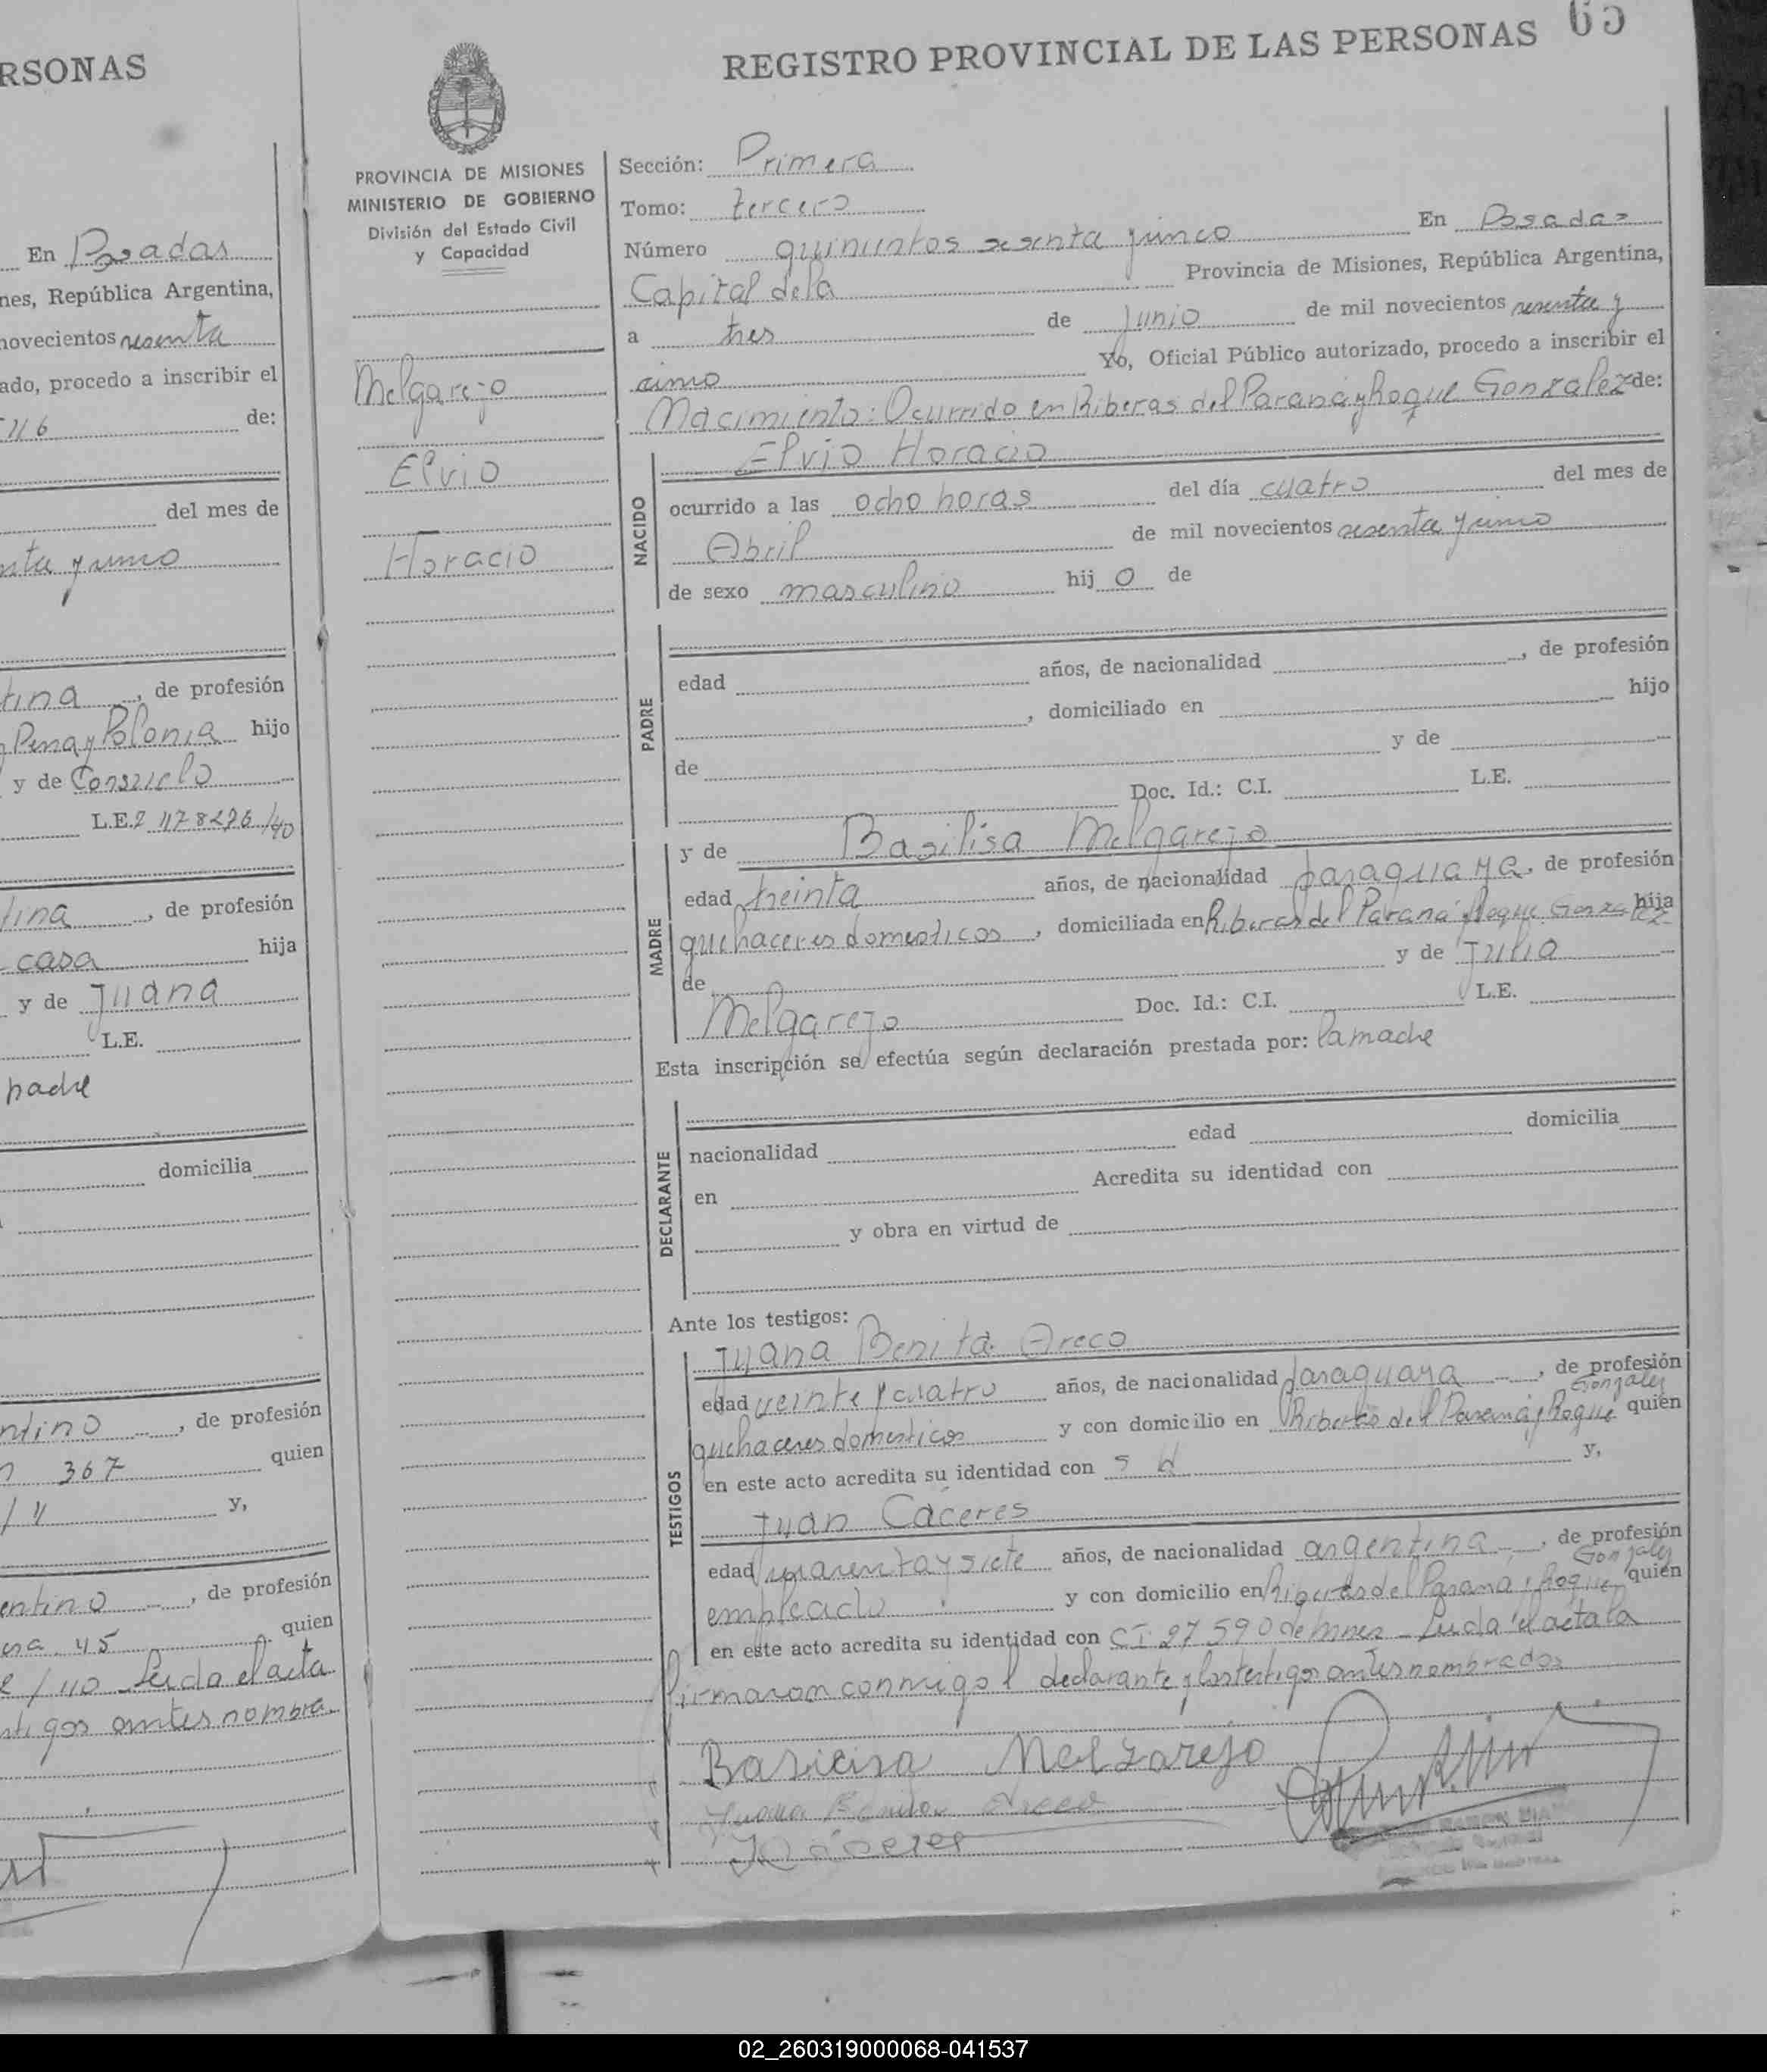 RSONAS
En Posadas
nes, República Argentina,
novecientos sesenta
ado, procedo a inscribir el
de:
del mes de
nta y uno
tina, de profesión
Pena y Polonia hijo
y de Consuelo
L.E.
tina, de profesión
casa hija
y de Juana
L.E.
padre
domicilia
ntino, de profesión
367 quien
y,
entino, de profesión
45 quien
/40 Leida el acta
antes nombra
65
REGISTRO PROVINCIAL DE LAS PERSONAS
PROVINCIA DE MISIONES
MINISTERIO DE GOBIERNO
División del Estado Civil
y Capacidad
Melgarejo
Elvio
Horacio
Sección: Primera
Tomo: tercero
Número quinientos sesenta y cinco En Posadas
Capital de la Provincia de Misiones, República Argentina,
a tres de Junio de mil novecientos sesenta y
uno Yo, Oficial Público autorizado, procedo a inscribir el
Nacimiento: Ocurrido en Riberas del Parana y Roque Gonzalez de:
NACIDO
Elvio Horacio
ocurrido a las ocho horas del día cuatro del mes de
Abril de mil novecientos sesenta y uno
de sexo masculino hijo de
PADRE
edad años, de nacionalidad , de profesión
, domiciliado en hijo
de y de
Doc. Id.: C.I. L.E.
MADRE
y de Basilisa Melgarejo
edad treinta años, de nacionalidad paraguaya, de profesión
quehaceres domesticos, domiciliada en Riberas del Paraná y Roque Gonzalez hija
de y de Julia
Melgarejo Doc. Id.: C.I. L.E.
Esta inscripción se efectúa según declaración prestada por: la madre
DECLARANTE
nacionalidad edad domicilia
en Acredita su identidad con
y obra en virtud de
Ante los testigos:
TESTIGOS
Juana Benita Areco
edad veinte y cuatro años, de nacionalidad paraguaya, de profesión
quehaceres domesticos y con domicilio en Riberas del Paraná y Roque Gonzalez quien
en este acto acredita su identidad con y,
Juan Cáceres
edad cuarenta y siete años, de nacionalidad argentina, de profesión
empleado y con domicilio en Riberas del Paraná y Roque Gonzalez quien
en este acto acredita su identidad con CI 27590 de Mnes - Leida el acta la
firmaron conmigo l declarante y los testigos antes nombrados
Basilisa Melgarejo
Juana Benita Areco
J Caceres
02_260319000068-041537